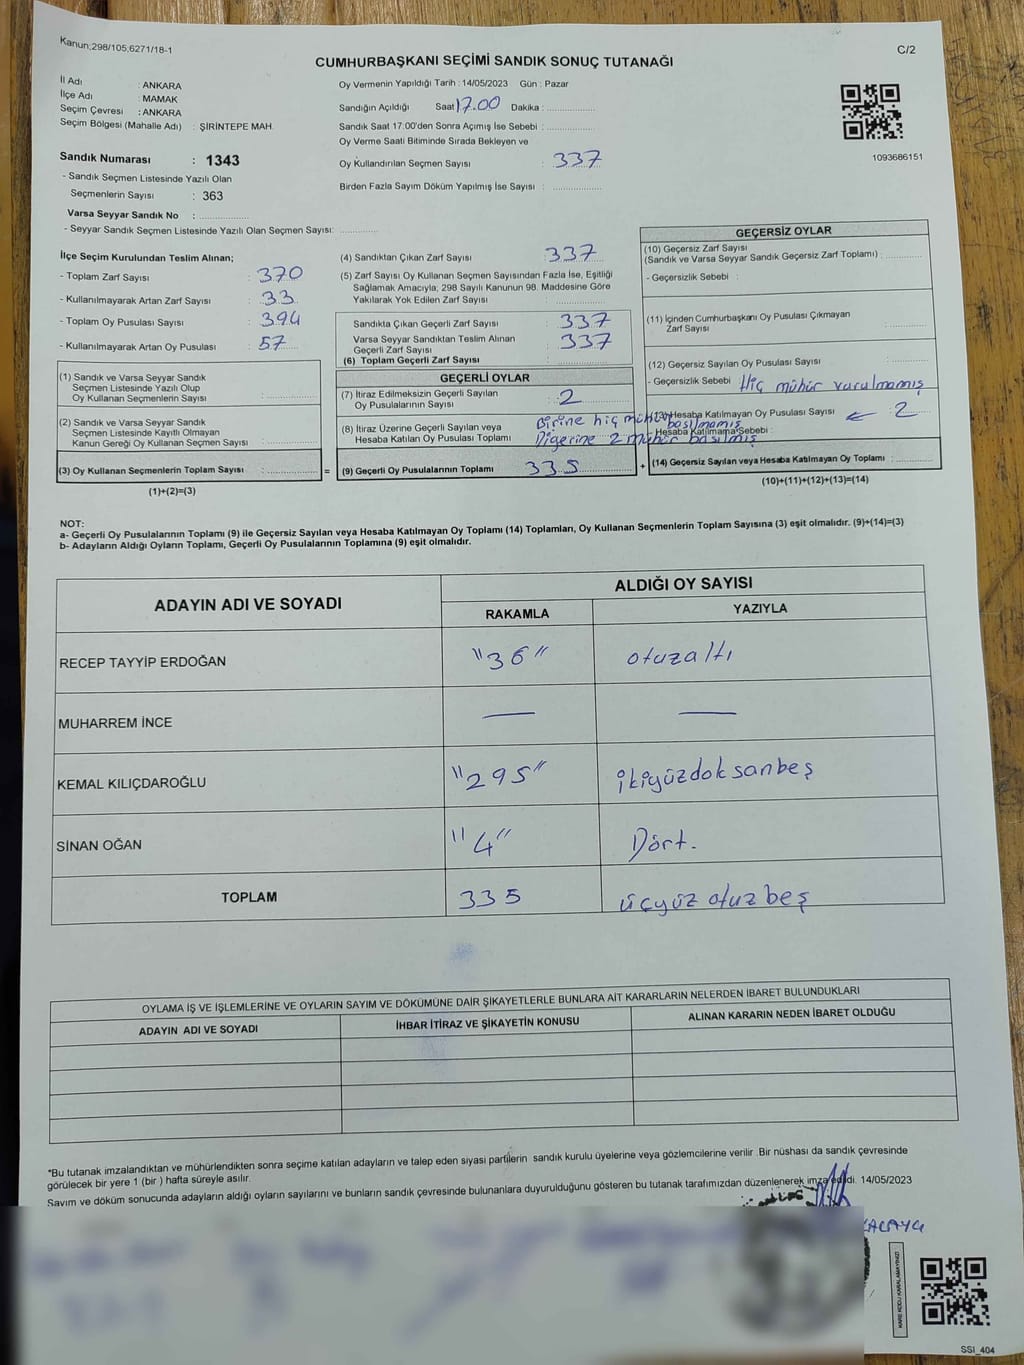 Kanun;298/105;6271/18-1
C/2
CUMHURBAŞKANI SEÇİMİ SANDIK SONUÇ TUTANAĞI
İl Adı : ANKARA
İlçe Adı : MAMAK
Seçim Çevresi : ANKARA
Seçim Bölgesi (Mahalle Adı) : ŞİRİNTEPE MAH.
Sandık Numarası : 1343
- Sandık Seçmen Listesinde Yazılı Olan
Seçmenlerin Sayısı : 363
Varsa Seyyar Sandık No :
- Seyyar Sandık Seçmen Listesinde Yazılı Olan Seçmen Sayısı:
Oy Vermenin Yapıldığı Tarih : 14/05/2023 Gün : Pazar
Sandığın Açıldığı Saat 17.00 Dakika :
Sandık Saat 17:00'den Sonra Açımış İse Sebebi :
Oy Verme Saati Bitiminde Sırada Bekleyen ve
Oy Kullandırılan Seçmen Sayısı : 337
Birden Fazla Sayım Döküm Yapılmış İse Sayısı :
1093686151
İlçe Seçim Kurulundan Teslim Alınan;
- Toplam Zarf Sayısı : 370
- Kullanılmayarak Artan Zarf Sayısı : 33
- Toplam Oy Pusulası Sayısı : 394
- Kullanılmayarak Artan Oy Pusulası : 57
(1) Sandık ve Varsa Seyyar Sandık
Seçmen Listesinde Yazılı Olup
Oy Kullanan Seçmenlerin Sayısı :
(2) Sandık ve Varsa Seyyar Sandık
Seçmen Listesinde Kayıtlı Olmayan
Kanun Gereği Oy Kullanan Seçmen Sayısı :
(3) Oy Kullanan Seçmenlerin Toplam Sayısı : =
(1)+(2)=(3)
(4) Sandıktan Çıkan Zarf Sayısı : 337
(5) Zarf Sayısı Oy Kullanan Seçmen Sayısından Fazla İse, Eşitliği
Sağlamak Amacıyla; 298 Sayılı Kanunun 98. Maddesine Göre
Yakılarak Yok Edilen Zarf Sayısı :
Sandıkta Çıkan Geçerli Zarf Sayısı : 337
Varsa Seyyar Sandıktan Teslim Alınan
Geçerli Zarf Sayısı : 337
(6) Toplam Geçerli Zarf Sayısı :
GEÇERLİ OYLAR
(7) İtiraz Edilmeksizin Geçerli Sayılan
Oy Pusulalarının Sayısı : 2
(8) İtiraz Üzerine Geçerli Sayılan veya
Hesaba Katılan Oy Pusulası Toplamı
Birine hiç mühür basılmamış
Diğerine 2 mühür basılmış
(9) Geçerli Oy Pusulalarının Toplamı : 335 +
GEÇERSİZ OYLAR
(10) Geçersiz Zarf Sayısı
(Sandık ve Varsa Seyyar Sandık Geçersiz Zarf Toplamı) :
- Geçersizlik Sebebi :
(11) İçinden Cumhurbaşkanı Oy Pusulası Çıkmayan
Zarf Sayısı :
(12) Geçersiz Sayılan Oy Pusulası Sayısı :
- Geçersizlik Sebebi : Hiç mühür vurulmamış
(13) Hesaba Katılmayan Oy Pusulası Sayısı ← 2
- Hesaba Katılmama Sebebi :
(14) Geçersiz Sayılan veya Hesaba Katılmayan Oy Toplamı :
(10)+(11)+(12)+(13)=(14)
NOT:
a- Geçerli Oy Pusulalarının Toplamı (9) ile Geçersiz Sayılan veya Hesaba Katılmayan Oy Toplamı (14) Toplamları, Oy Kullanan Seçmenlerin Toplam Sayısına (3) eşit olmalıdır. (9)+(14)=(3)
b- Adayların Aldığı Oyların Toplamı, Geçerli Oy Pusulalarının Toplamına (9) eşit olmalıdır.
ADAYIN ADI VE SOYADI
ALDIĞI OY SAYISI
RAKAMLA YAZIYLA
RECEP TAYYİP ERDOĞAN "36" otuzaltı
MUHARREM İNCE — —
KEMAL KILIÇDAROĞLU "295" ikiyüzdoksanbeş
SİNAN OĞAN "4" Dört.
TOPLAM 335 üçyüz otuzbeş
OYLAMA İŞ VE İŞLEMLERİNE VE OYLARIN SAYIM VE DÖKÜMÜNE DAİR ŞİKAYETLERLE BUNLARA AİT KARARLARIN NELERDEN İBARET BULUNDUKLARI
ADAYIN ADI VE SOYADI İHBAR İTİRAZ VE ŞİKAYETİN KONUSU ALINAN KARARIN NEDEN İBARET OLDUĞU
*Bu tutanak imzalandıktan ve mühürlendikten sonra seçime katılan adayların ve talep eden siyasi partilerin sandık kurulu üyelerine veya gözlemcilerine verilir .Bir nüshası da sandık çevresinde
görülecek bir yere 1 (bir ) hafta süreyle asılır.
Sayım ve döküm sonucunda adayların aldığı oyların sayılarını ve bunların sandık çevresinde bulunanlara duyurulduğunu gösteren bu tutanak tarafımızdan düzenlenerek imza edildi. 14/05/2023
KARE KODU KARALAMAYINIZ!
SSI_404